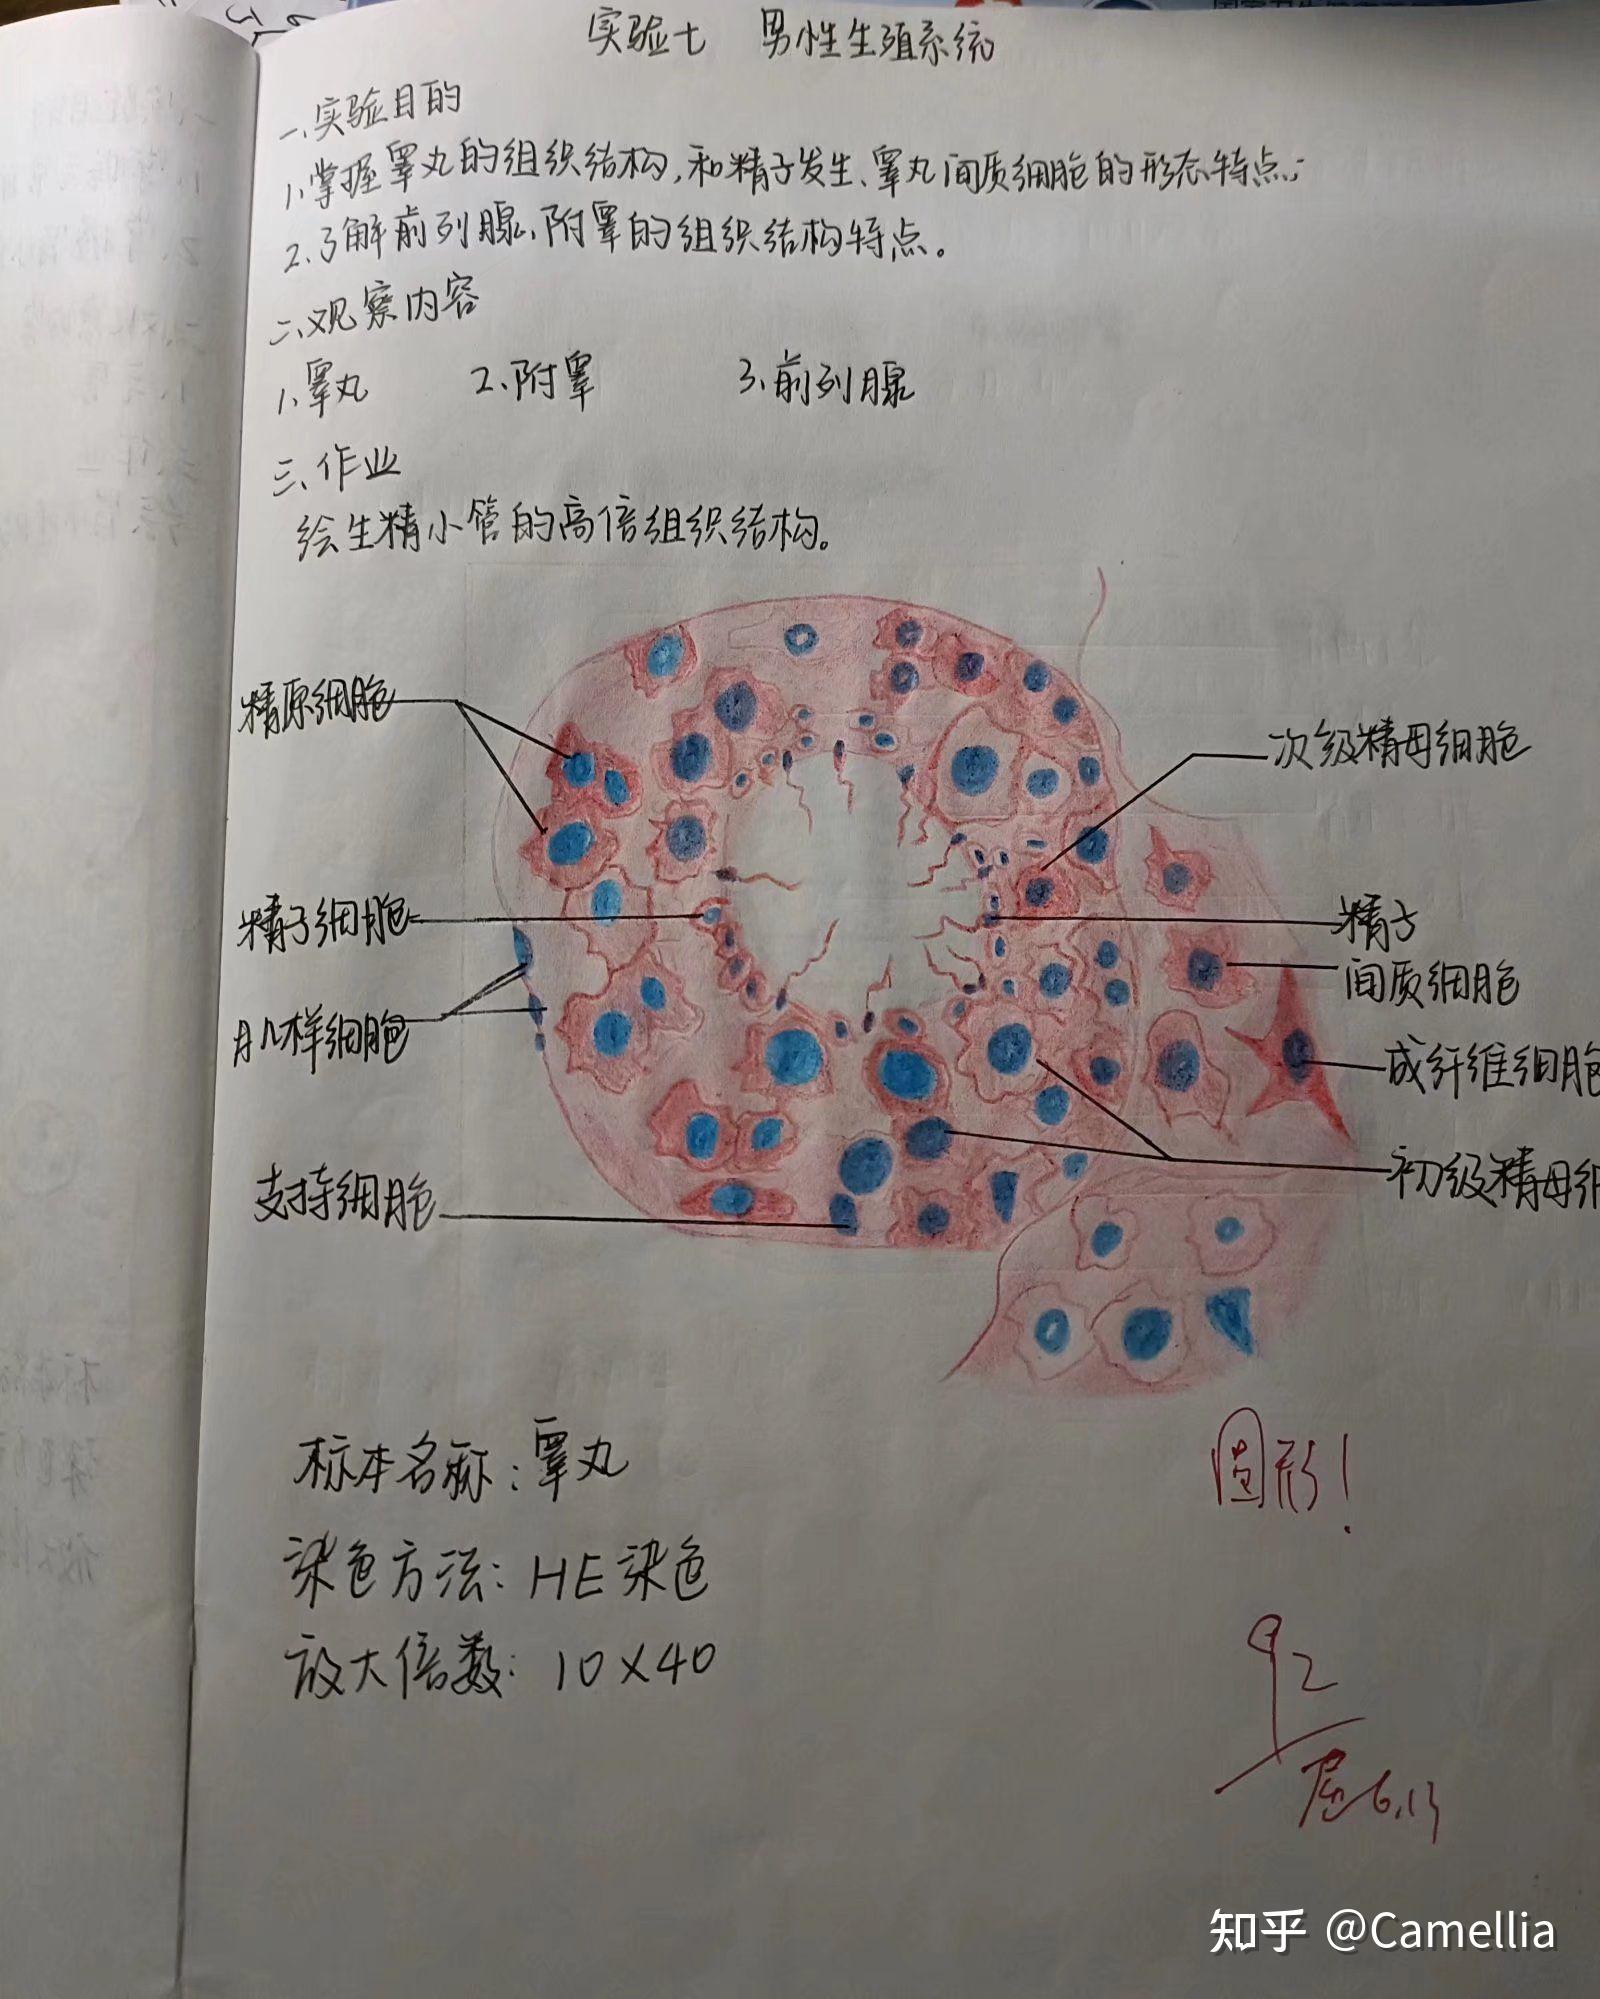 实验七 男性生殖系统
一、实验目的
1、掌握睾丸的组织结构,和精子发生、睾丸间质细胞的形态特点;
2、了解前列腺、附睾的组织结构特点。
二、观察内容
1、睾丸 2、附睾 3、前列腺
三、作业
绘生精小管的高倍组织结构。
精原细胞
次级精母细胞
精子细胞
精子
间质细胞
肌样细胞
成纤维细胞
支持细胞
初级精母细
标本名称:睾丸
圆形!
染色方法:HE染色
放大倍数:10×40
92
屈6.13
知乎 @Camellia